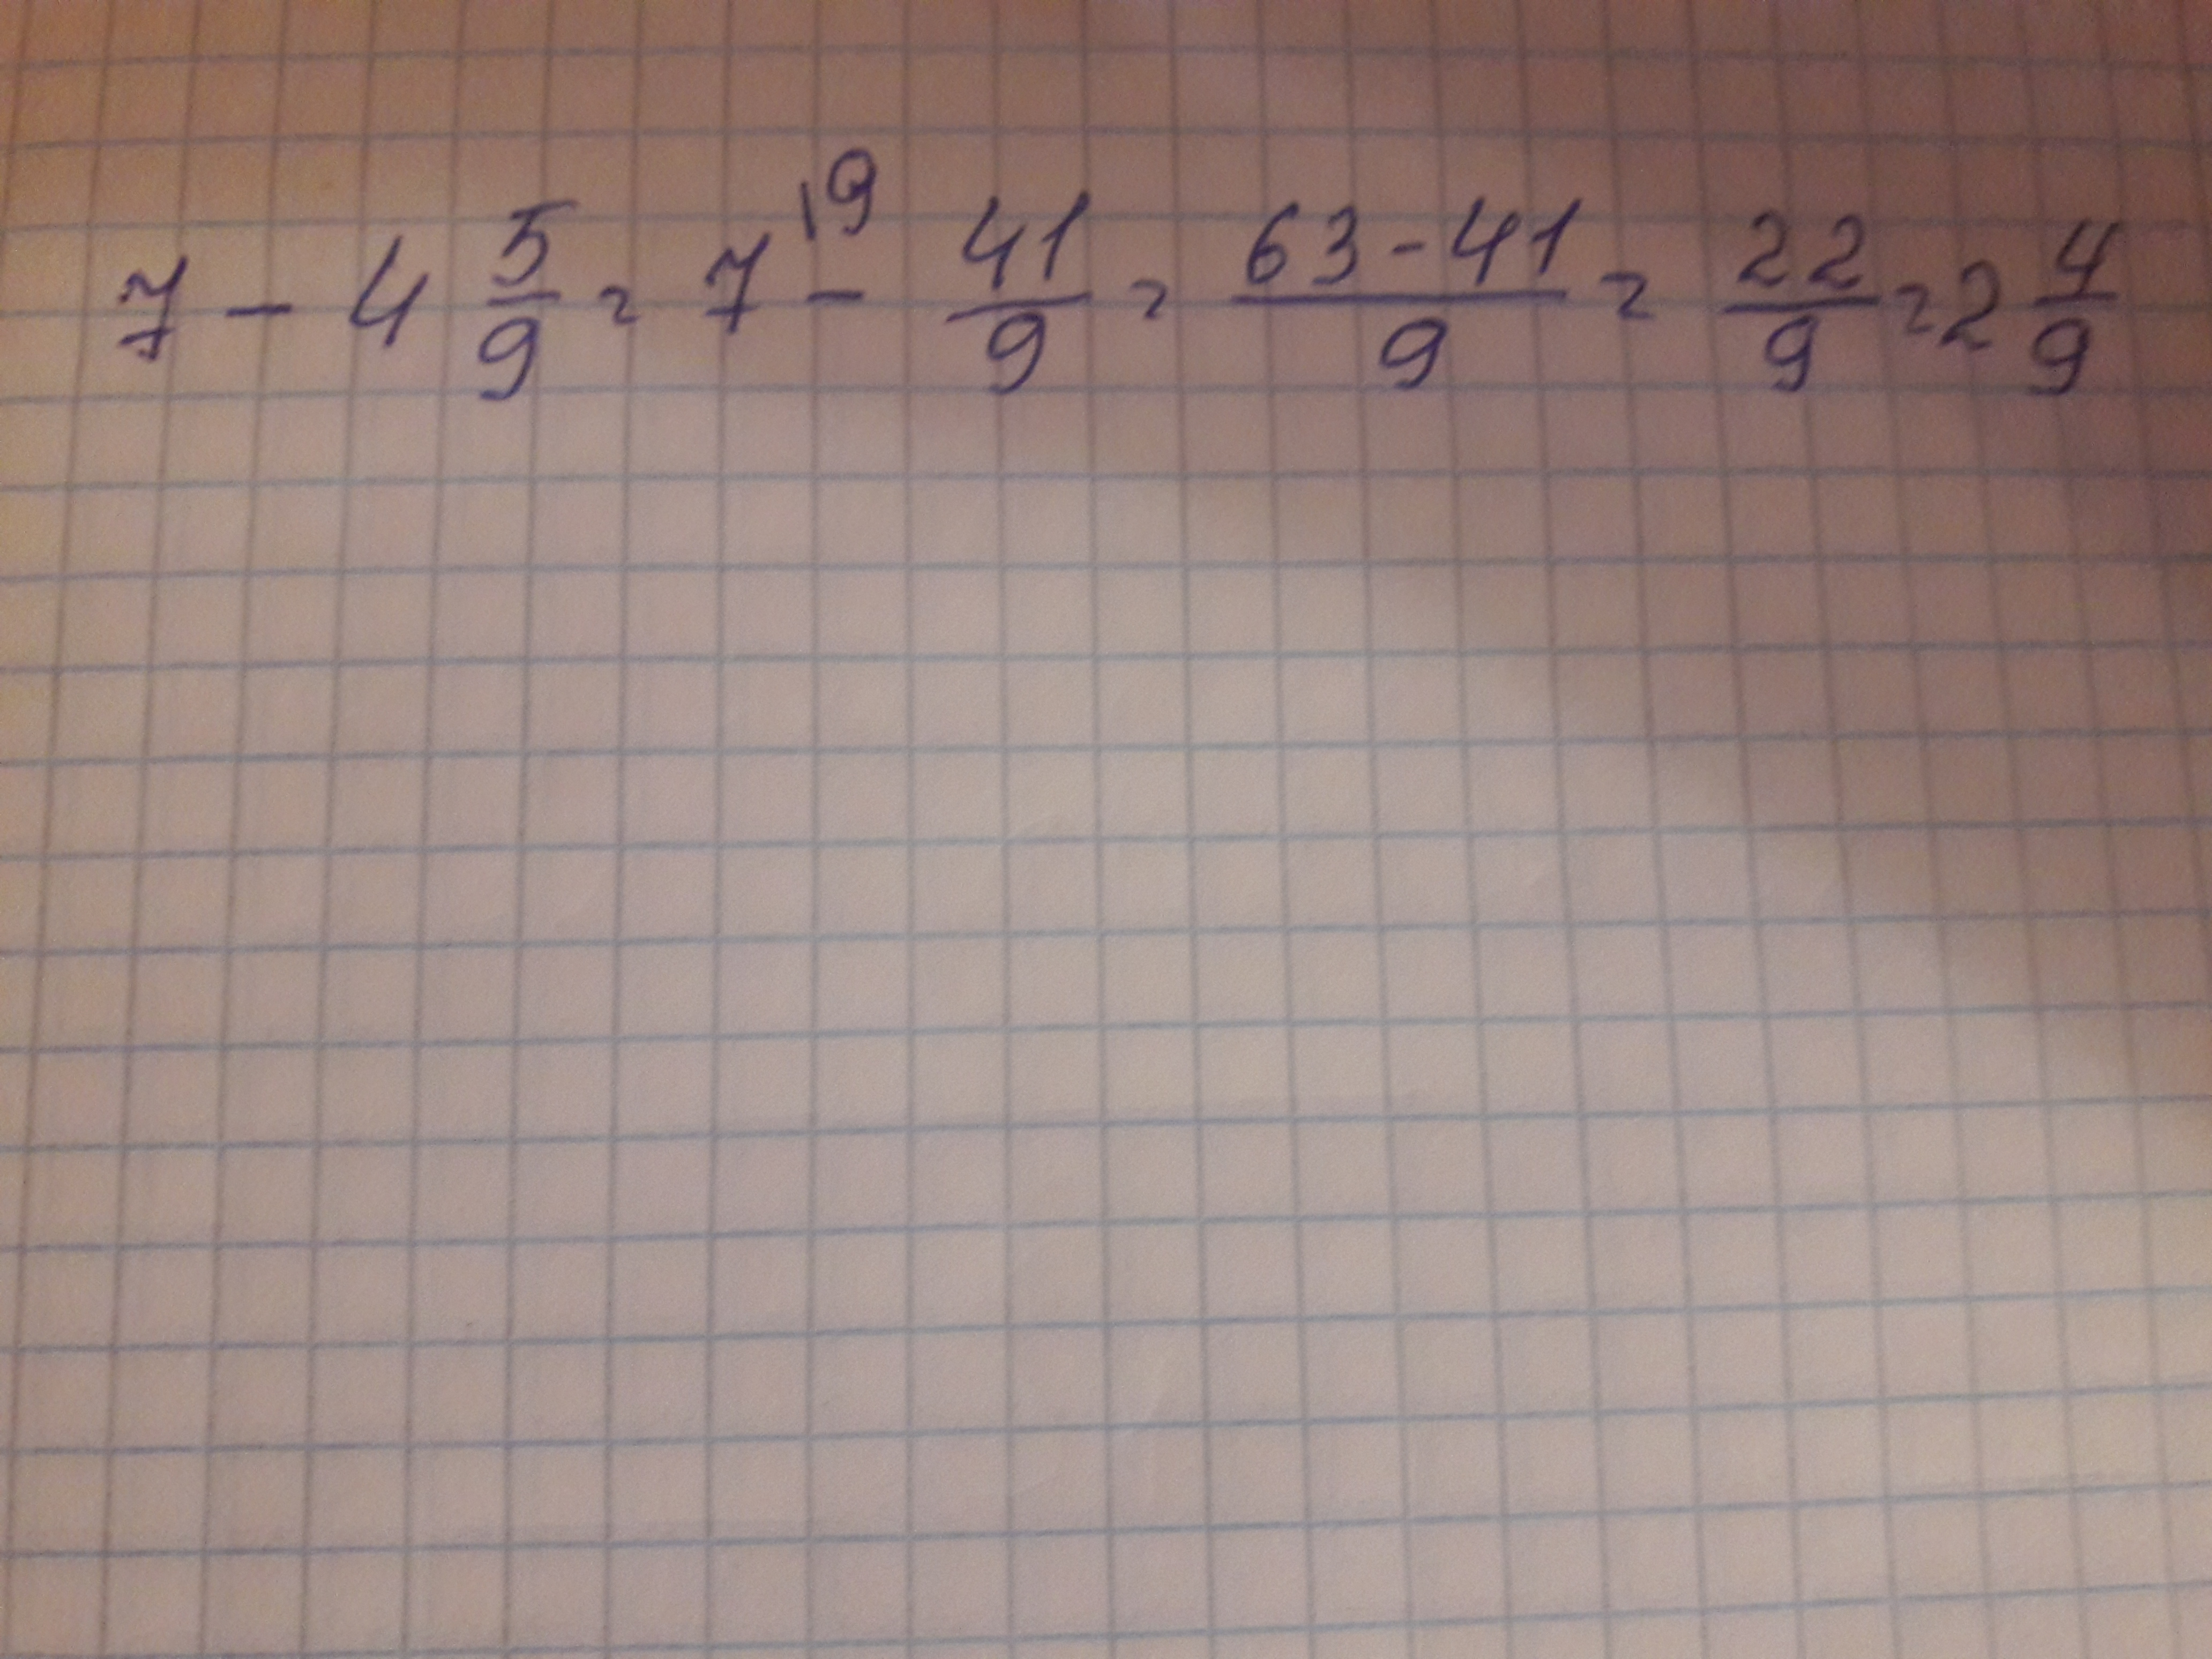 7 - 4 5/9 = 7 \9 - 41/9 = 63-41/9 = 22/9 = 2 4/9